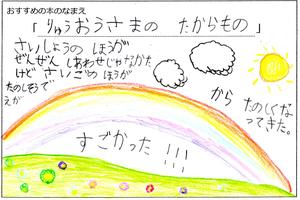 おすすめの本のなまえ
「りゅうおうさまの たからもの」
さいしょうの ほうが
ぜんぜん しあわせじゃなかた
けど さいごの ほうが
たのしそうで
えが
から たのしくな
ってきた。
すごかった!!!